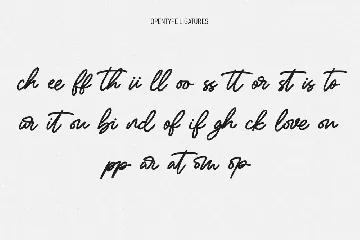 OPENTYPE LIGATURES
ch ee ff th ii ll oo ss tt or st is to
ar it ou bi nd of if gh ck love on
pp ar at om op